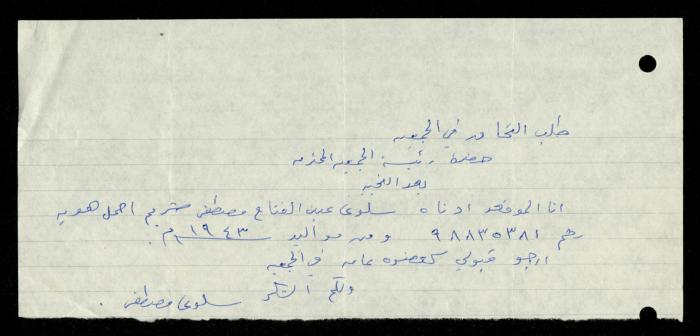 طلب انتخاب في الجمعيه
حضرة رئيسة الجمعيه المحترمه
بعد التحيه
انا الموقعه ادناه سلوى عبد الفتاح مصطفى شريم احمل هويه
رقم ٩٨٨٣٥٣٨١ ومن مواليد ١٩٤٣م.
ارجو قبولي كعضوه عامه في الجمعيه
ولكم الشكر سلوى مصطفى .